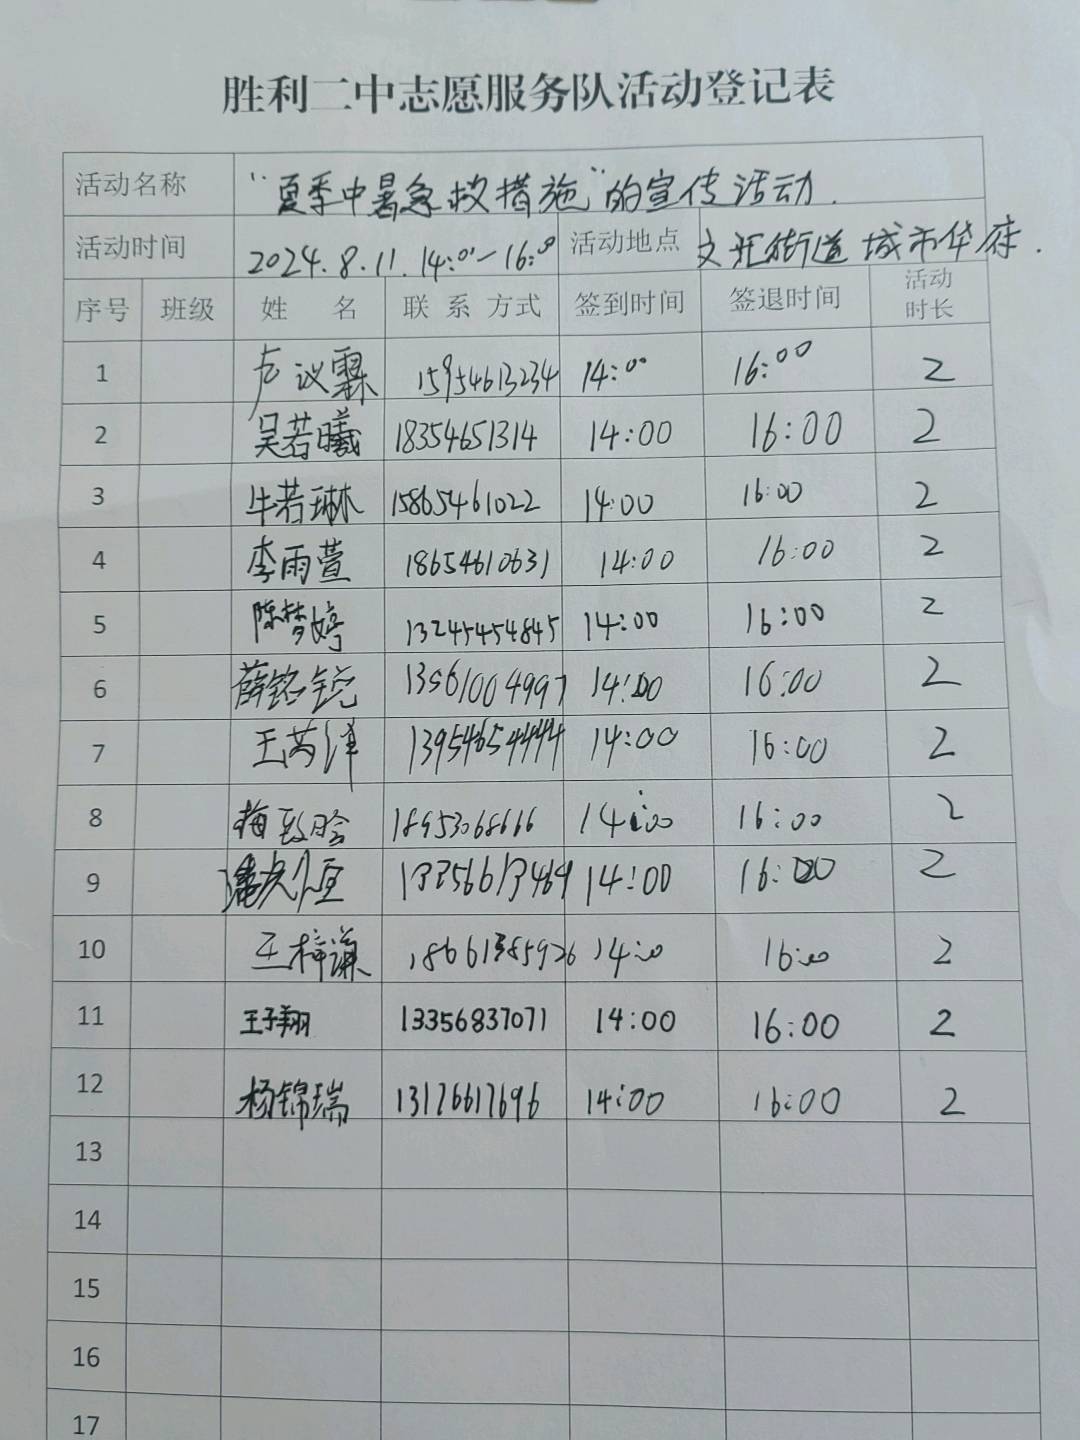 胜利二中志愿服务队活动登记表
活动名称 "夏季中暑急救措施"的宣传活动.
活动时间 2024.8.11. 14:00-16:00 活动地点 文汇街道城市华府.
序号 班级 姓 名 联 系 方式 签到时间 签退时间 活动时长
1 议霖 15954613234 14:00 16:00 2
2 吴若曦 18354651314 14:00 16:00 2
3 牛若琳 15865461022 14:00 16:00 2
4 李雨萱 18654610631 14:00 16:00 2
5 陈梦婷 13245454845 14:00 16:00 2
6 薛铭锐 13561004997 14:00 16:00 2
7 王芮泽 13954654444 14:00 16:00 2
8 梅 18953068666 14:00 16:00 2
9 14:00 16:00 2
10 王梓谦 18661385926 14:00 16:00 2
11 王子翔 13356837071 14:00 16:00 2
12 杨锦瑞 13176617696 14:00 16:00 2
13
14
15
16
17